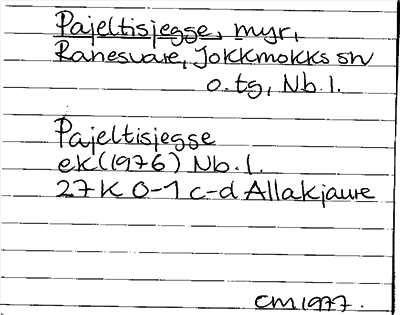 Pajeltisjegse, myr,
Ranesvare, Jokkmokks sn
o. tg, Nb. l.
Pajeltisjegse
ek (1976) Nb. l.
27 K 0-1 c-d Allakjaure
CM 1977.